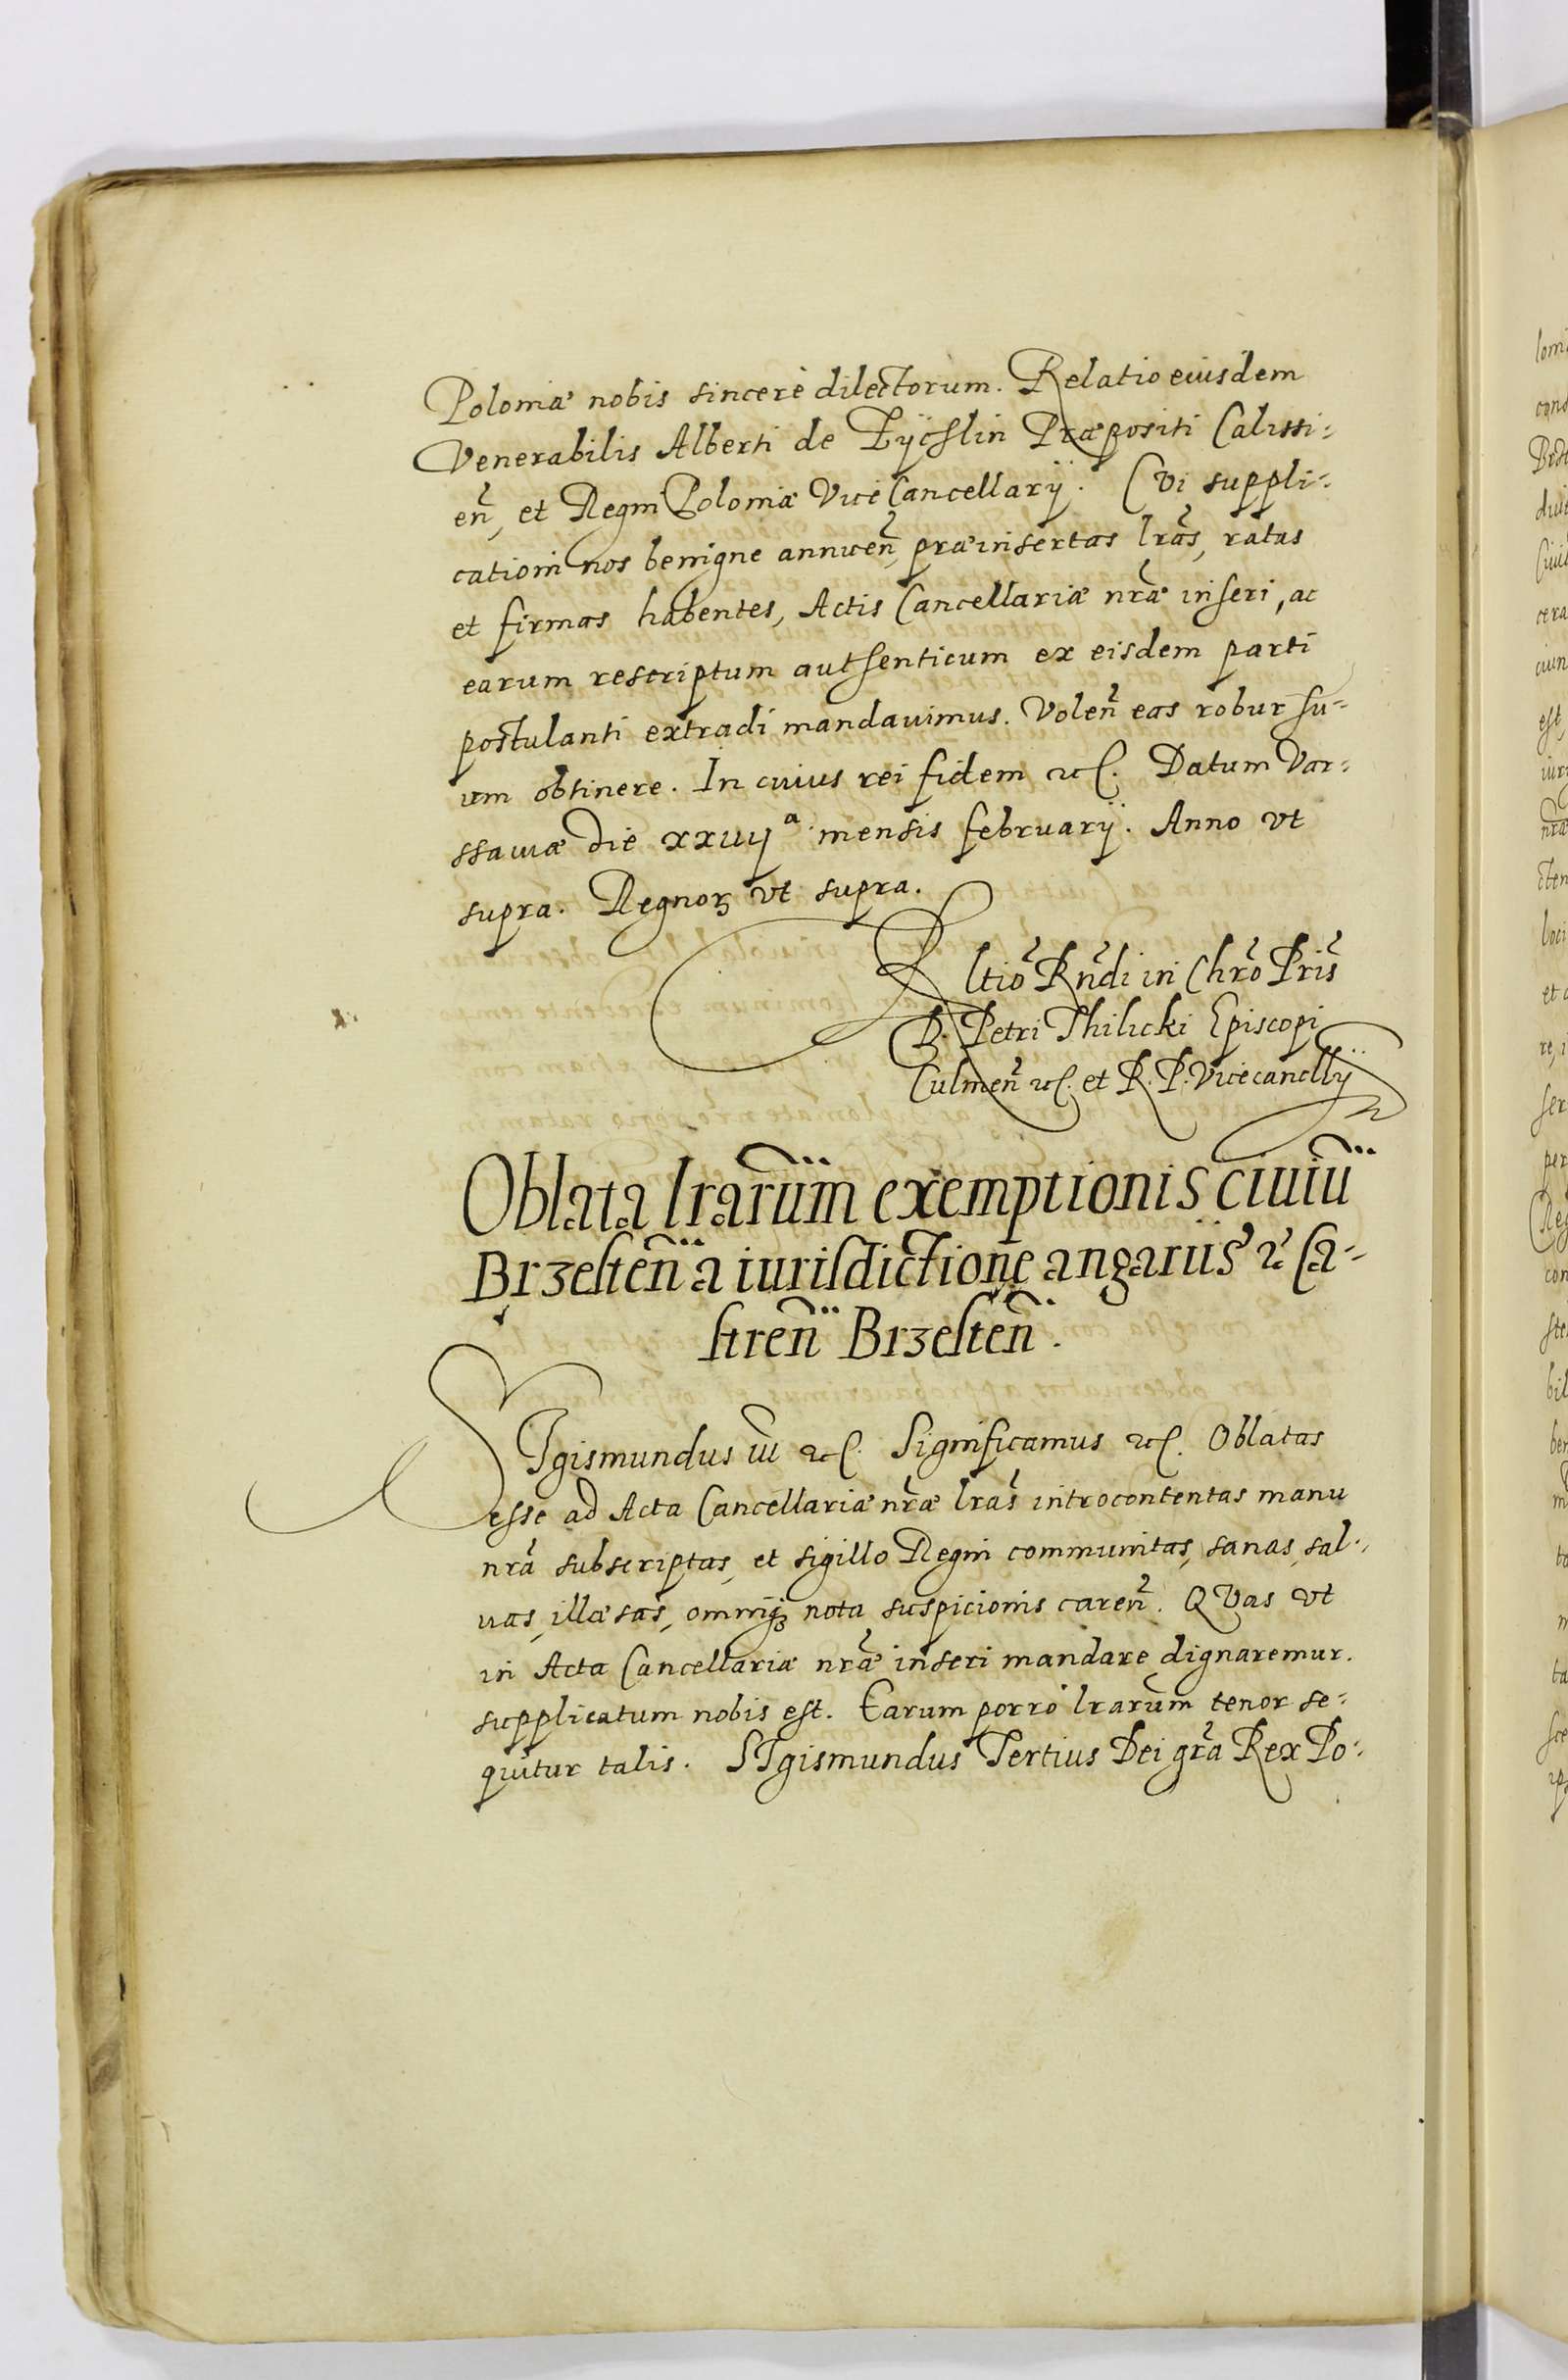 Poloniæ nobis sincerè dilectorum. Relatio eiusdem
Venerabilis Alberti de Zÿchlin Præpositi Calissi=
eñ, et Regni Poloniæ Vice Cancellarÿ. CVi suppli=
cationi nos benigne annueñ præinsertas lrãs, ratas
et firmas habentes, Actis Cancellariæ nrãæ inseri, ac
earum rescriptum authenticum ex eisdem parti
postulanti extradi mandauimus. Voleñ eas robur su=
um obtinere. In cuius rei fidem etc. Datum Var=
ssauiæ die xxiiijª mensis februarÿ. Anno vt
supra. Regnoꝝ vt supra.
Rltiõ Rñdi in Chrõ Pris̃
D. Petri Thilicki Episcopi
Culmeñ etc. et R. P. Vicecancllÿ
Oblata lrarũm exemptionis ciuiũ
Brzesteñ a iurisdictione angariis et Ca=
streñ Brzesteñ.
SIgismundus iii etc. Significamus etc. Oblatas
esse ad Acta Cancellariæ nrãæ lrãs introcontentas manu
nrã subscriptas, et sigillo Regni communitas, sanas, sal=
uas, illæsas, omniqꝫ nota suspicionis careñ. QVas vt
in Acta Cancellariæ nrãæ inseri mandare dignaremur.
supplicatum nobis est. Earum porrò lrarũm tenor se=
quitur talis. SIgismundus Tertius Dei grã Rex Po=